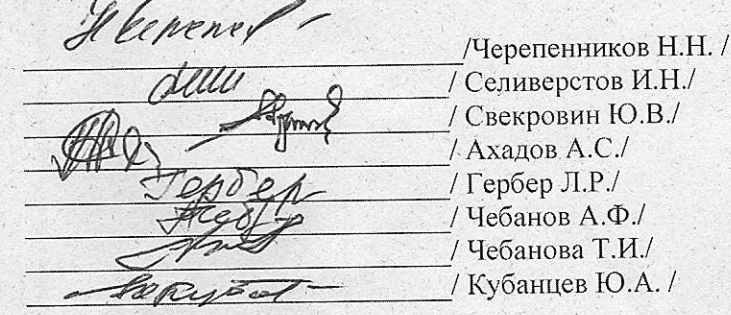 /Черепенников Н.Н. /
/ Селиверстов И.Н./
/ Свекровин Ю.В./
/ Ахадов А.С./
Гербер / Гербер Л.Р./
/ Чебанов А.Ф./
/ Чебанова Т.И./
/ Кубанцев Ю.А. /